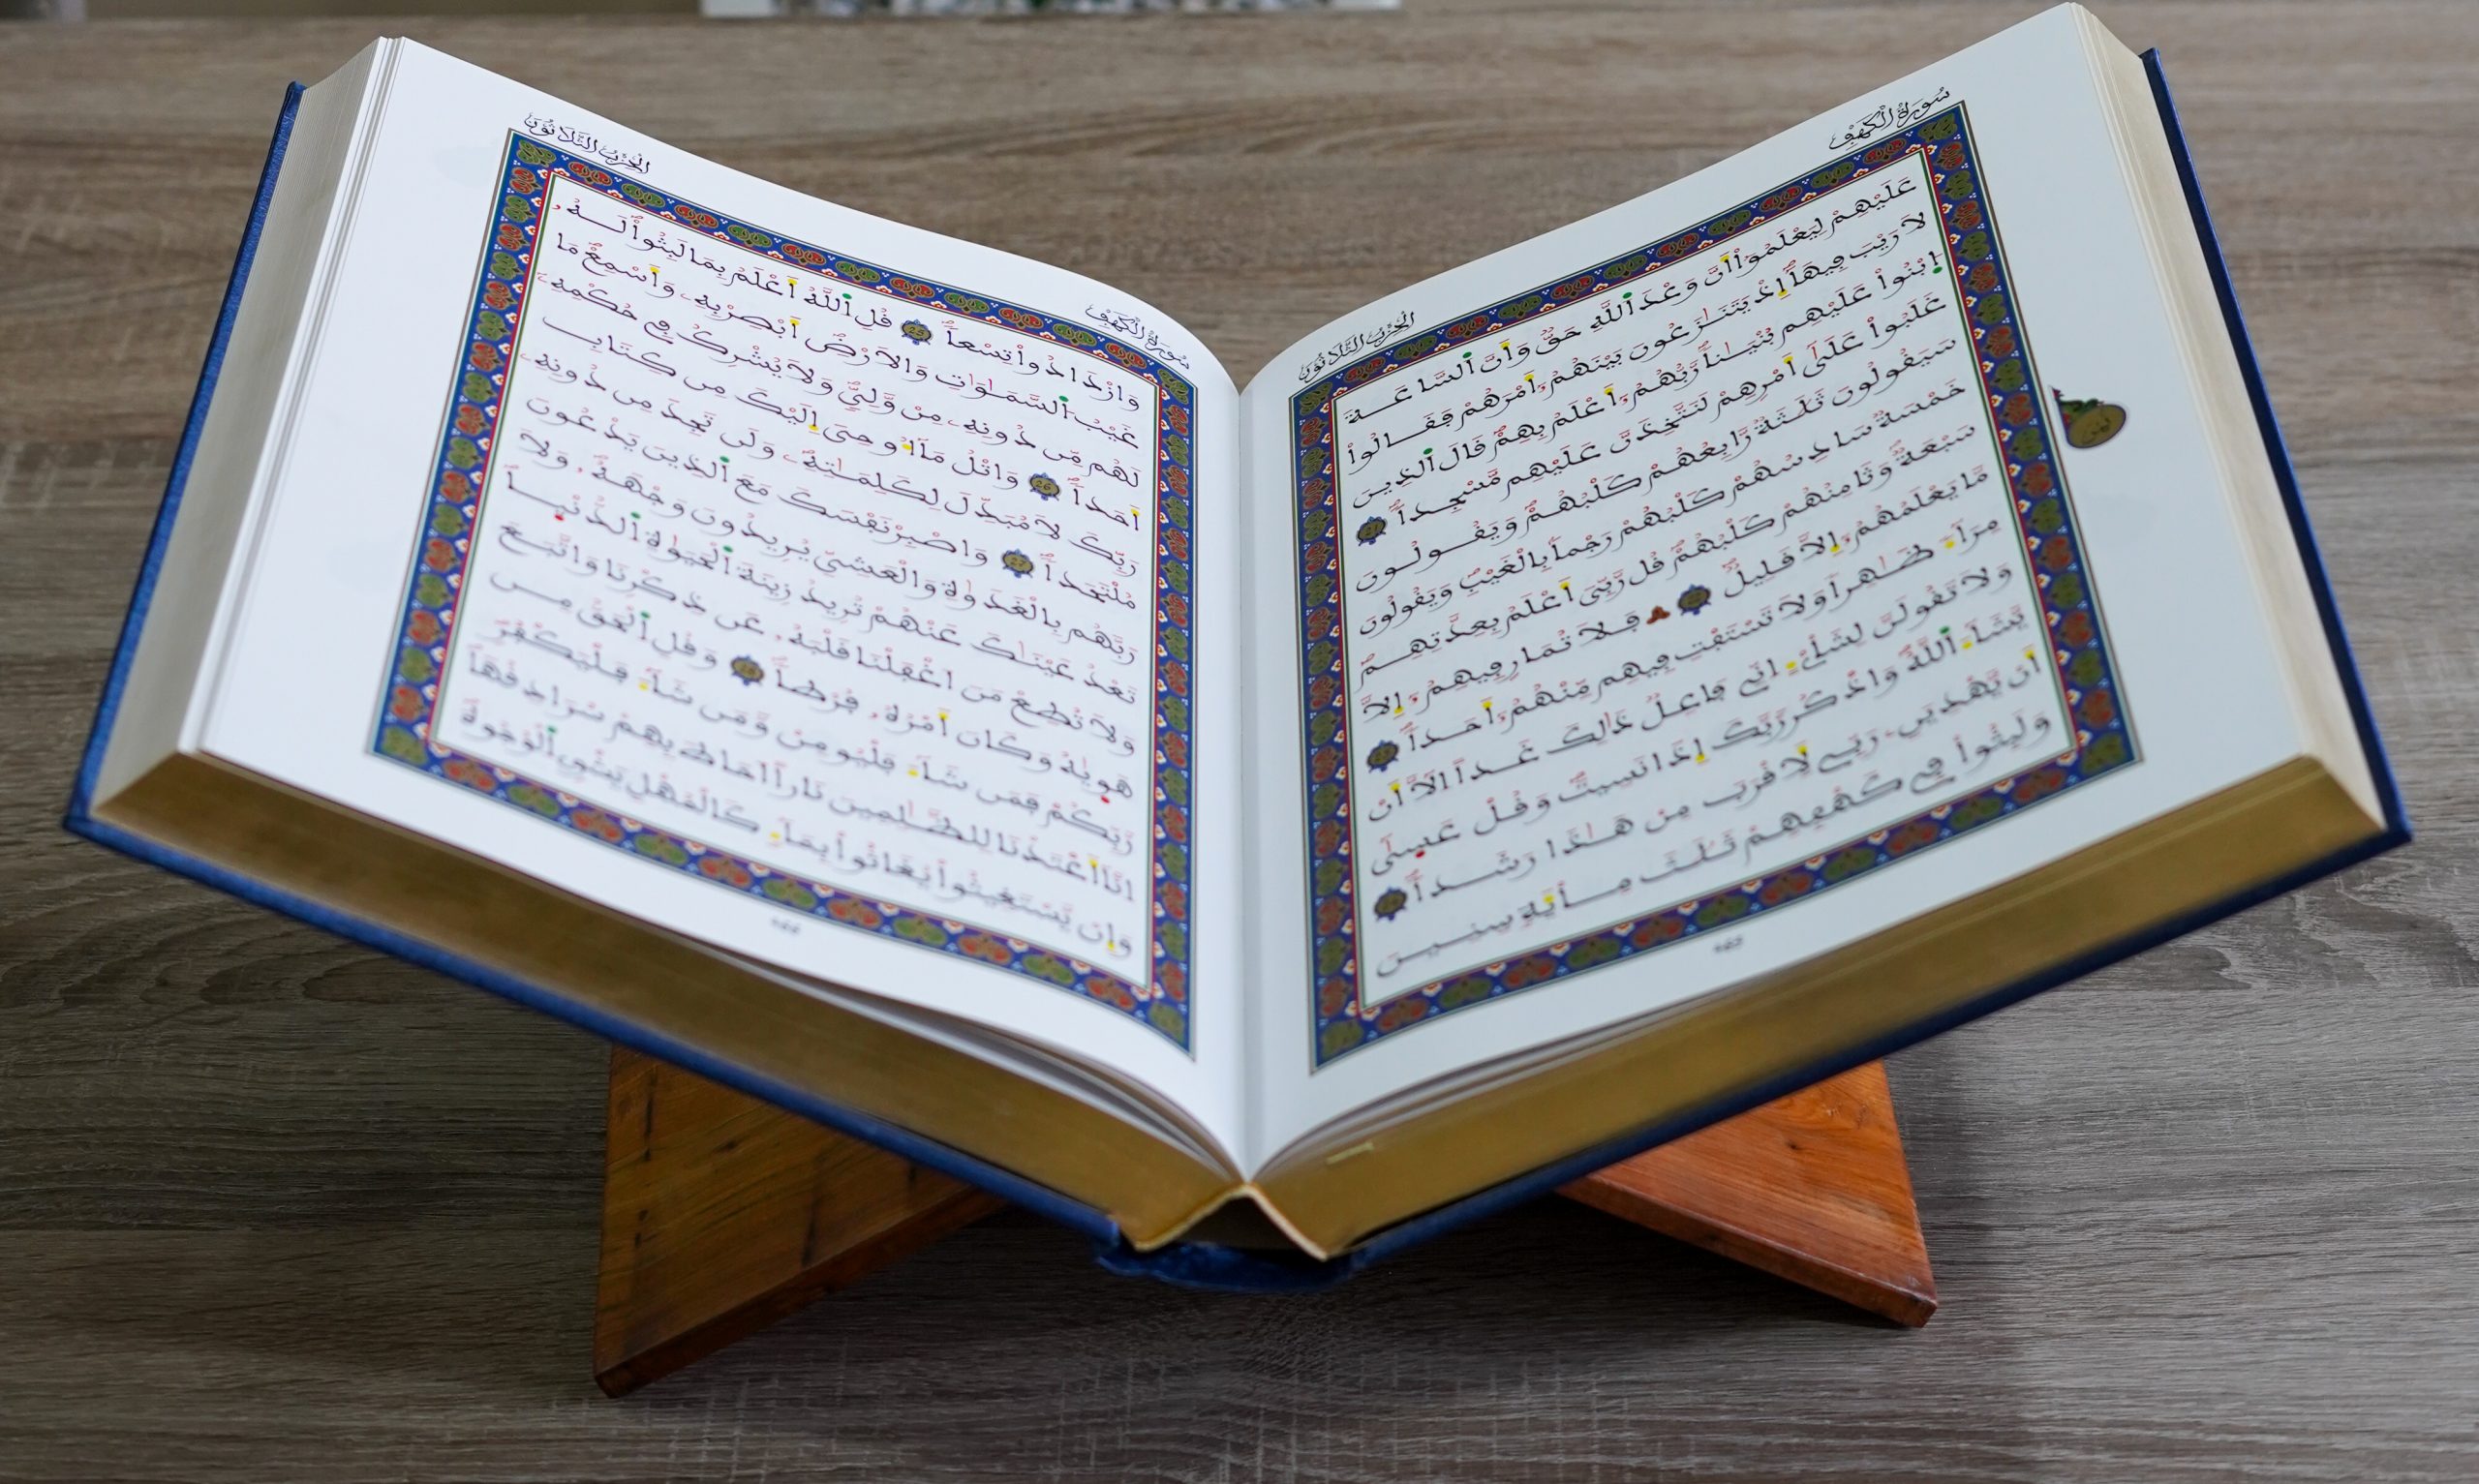 سُورَةُ الْكَهْفِ
الْحِزْبُ الثَّلَاثُونَ
عَلَيْهِمْ لِيَعْلَمُوٓاْ أَنَّ وَعْدَ اَللَّهِ حَقٌّ وَأَنَّ اَلسَّاعَةَ
لَا رَيْبَ فِيهَآ إِذْ يَتَنَٰزَعُونَ بَيْنَهُمُۥٓ أَمْرَهُمْ فَقَالُواْ
اُبْنُواْ عَلَيْهِم بُنْيَٰناً رَّبُّهُمُۥٓ أَعْلَمُ بِهِمْ قَالَ اَلذِينَ
غَلَبُواْ عَلَىٰٓ أَمْرِهِمْ لَنَتَّخِذَنَّ عَلَيْهِم مَّسْجِداً 21
سَيَقُولُونَ ثَلَٰثَةٌ رَّابِعُهُمْ كَلْبُهُمْ وَيَقُولُونَ
خَمْسَةٌ سَادِسُهُمْ كَلْبُهُمْ رَجْماً بِالْغَيْبِ وَيَقُولُونَ
سَبْعَةٌ وَثَامِنُهُمْ كَلْبُهُمْ قُل رَّبِّيَ أَعْلَمُ بِعِدَّتِهِم
مَّا يَعْلَمُهُمُۥٓ إِلَّا قَلِيلٌ 22 فَلَا تُمَارِ فِيهِمُۥٓ إِلَّا
مِرَآءً ظَٰهِراً وَلَا تَسْتَفْتِ فِيهِم مِّنْهُمُۥٓ أَحَداً 23
وَلَا تَقُولَنَّ لِشَاْيْءٍ اِنِّي فَاعِلٌ ذَالِكَ غَداً اِلَّآ أَنْ
يَّشَآءَ اَللَّهُ وَاذْكُر رَّبَّكَ إِذَا نَسِيتَ وَقُلْ عَسَىٰٓ
أَنْ يَّهْدِيَنِۦ رَبِّي لِأَقْرَبَ مِنْ هَٰذَا رَشَداً 24
وَلَبِثُواْ فِي كَهْفِهِمْ ثَلَٰثَ مِاْئَةٍ سِنِينَ
ثمن
سُورَةُ الْكَهْفِ
الْحِزْبُ الثَّلَاثُونَ
وَازْدَادُواْ تِسْعاً 25 قُلِ اِللَّهُ أَعْلَمُ بِمَا لَبِثُواْ لَهُۥ
غَيْبُ اُلسَّمَٰوَٰتِ وَالَارْضِ أَبْصِرْ بِهِۦ وَأَسْمِعْ مَا
لَهُم مِّن دُونِهِۦ مِنْ وَّلِيٍّ وَلَا يُشْرِكُ فِي حُكْمِهِۦٓ
أَحَداً 26 وَاتْلُ مَآ أُوحِيَ إِلَيْكَ مِن كِتَابِ
رَبِّكَ لَا مُبَدِّلَ لِكَلِمَٰتِهِۦ وَلَن تَجِدَ مِن دُونِهِۦ
مُلْتَحَداً 27 وَاصْبِرْ نَفْسَكَ مَعَ اَلذِينَ يَدْعُونَ
رَبَّهُم بِالْغَدَوٰةِ وَالْعَشِيِّ يُرِيدُونَ وَجْهَهُۥ وَلَا
تَعْدُ عَيْنَٰكَ عَنْهُمْ تُرِيدُ زِينَةَ اَلْحَيَوٰةِ اِلدُّنْيَا
وَلَا تُطِعْ مَنَ اَغْفَلْنَا قَلْبَهُۥ عَن ذِكْرِنَا وَاتَّبَعَ
هَوَىٰهُ وَكَانَ أَمْرُهُۥ فُرُطاً 28 وَقُلِ اِلْحَقُّ مِن
رَّبِّكُمْ فَمَن شَآءَ فَلْيُومِنْ وَّمَن شَآءَ فَلْيَكْفُرِ
اِنَّآ أَعْتَدْنَا لِلظَّٰلِمِينَ نَاراً اَحَاطَ بِهِمْ سُرَادِقُهَا
وَإِنْ يَّسْتَغِيثُواْ يُغَاثُواْ بِمَآءٍ كَالْمُهْلِ يَشْوِي اِلْوُجُوهَ